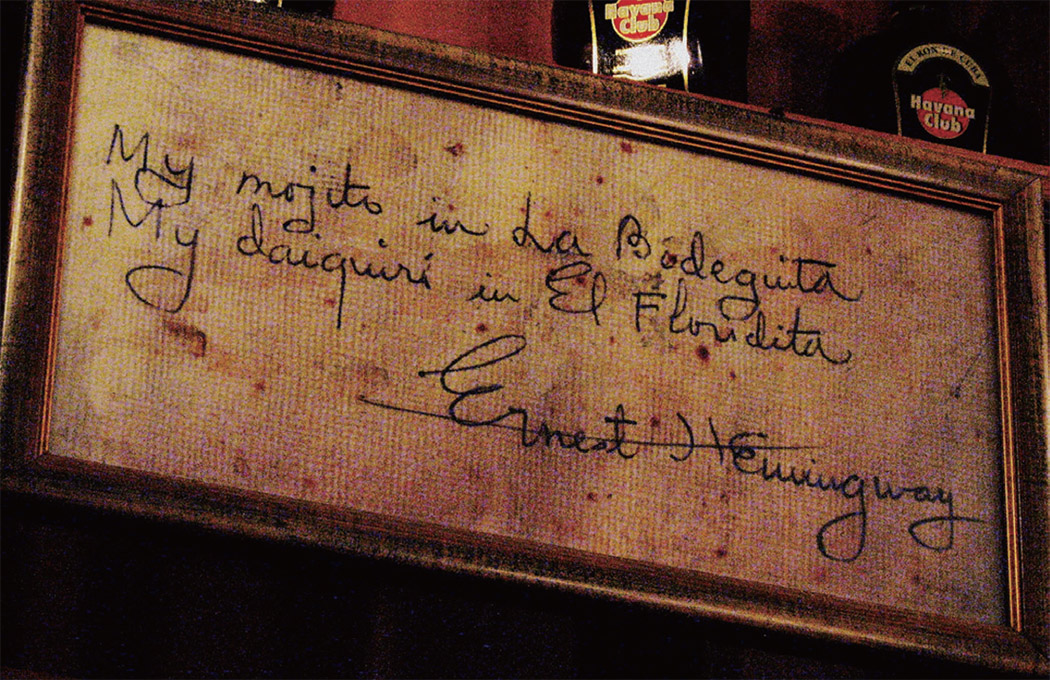 Havana
Club
EL RON DE CUBA
Havana
Club
My mojito in La Bodeguita
My daiquirí in El Floridita
Ernest Hemingway